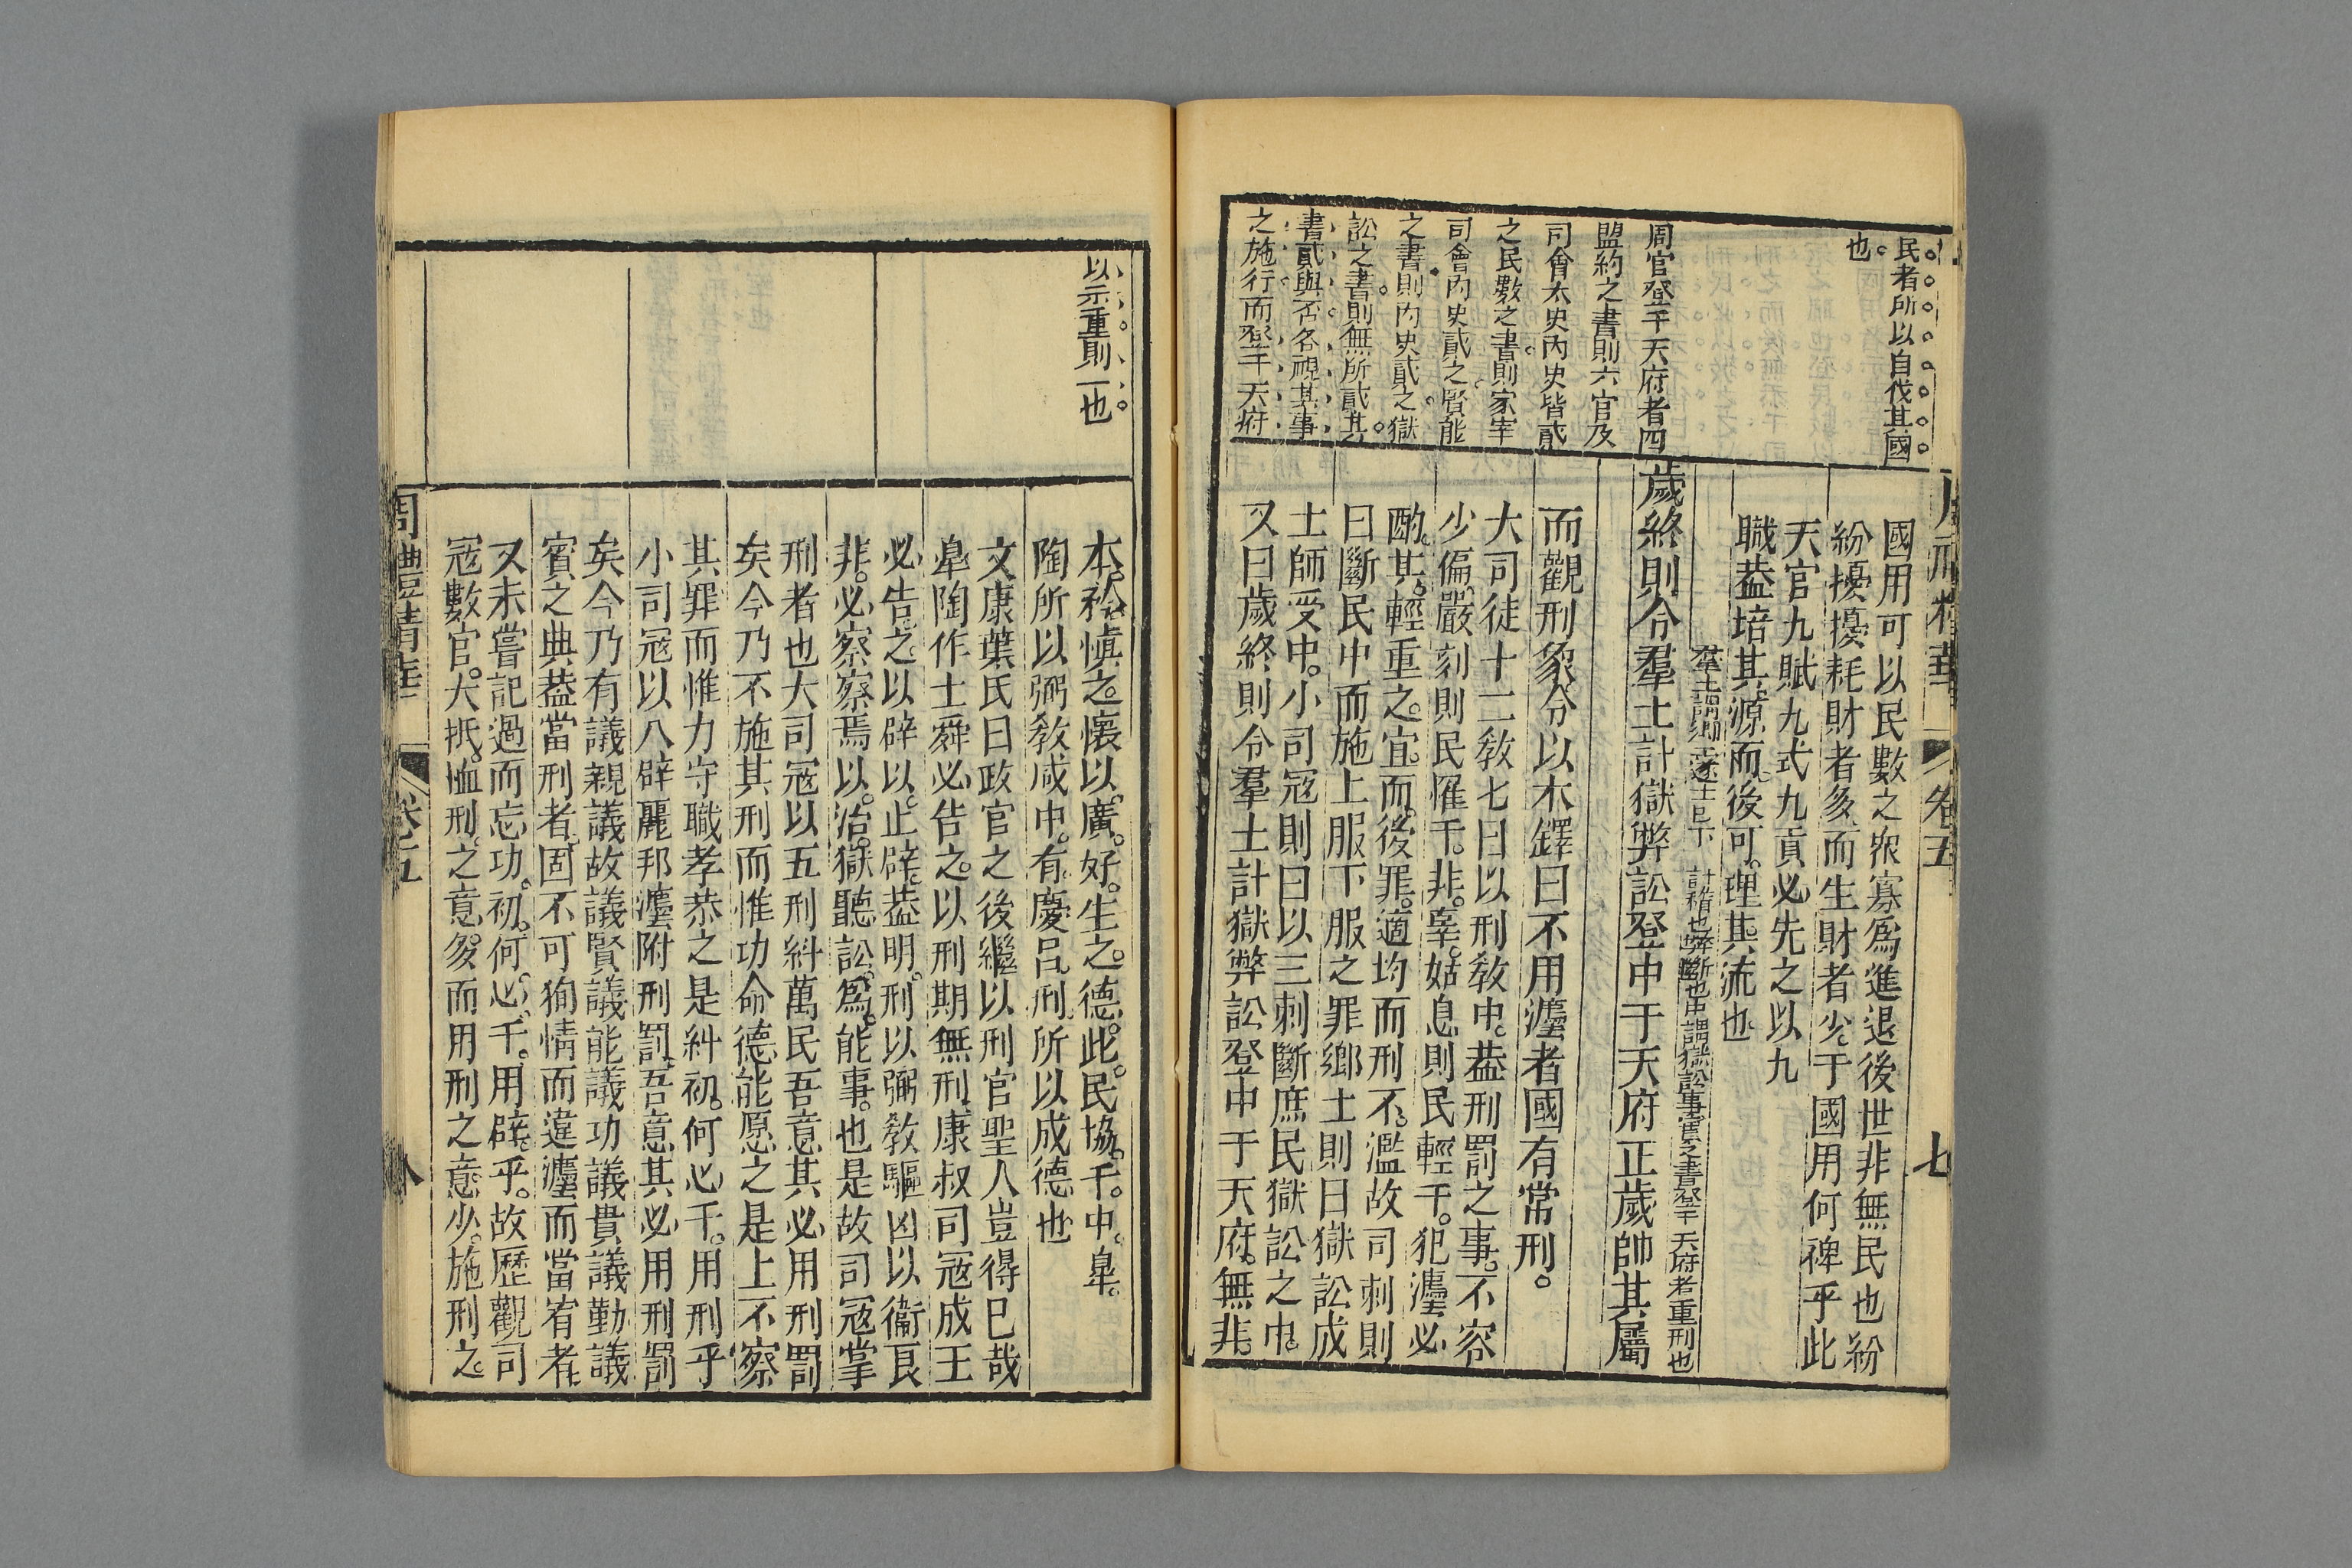 民者所以自伐其國
也
周官登于天府者四
盟約之書則六官及
司會太史內史皆貳
之民數之書則冢宰
司會內史貳之賢能
之書則內史貳之獄
訟之書則無所貳其
書貳與否各視其事
之施行而登于天府
國用可以民數之衆寡爲進退後世非無民也紛
紛擾擾耗財者多而生財者少于國用何裨乎此
天官九賦九式九貢必先之以九
職葢培其源而後可理其流也
歲終則令羣士計獄弊訟登中于天府正歲帥其屬
而觀刑象令以木鐸曰不用灋者國有常刑
大司徒十二敎七曰以刑敎中葢刑罰之事不容
少偏嚴刻則民罹于非辜姑息則民輕于犯灋必
酌其輕重之宜而後罪適均而刑不濫故司刺則
曰斷民中而施上服下服之罪鄉士則曰獄訟成
士師受中小司寇則曰以三刺斷庶民獄訟之中
又曰歲終則令羣士計獄弊訟登中于天府無非
卷五
七
以示重則一也
本矜愼之懷以廣好生之德此民協于中臯
陶所以弼敎咸中有慶呂刑所以成德也
文康葉氏曰政官之後繼以刑官聖人豈得已哉
臯陶作士舜必告之以刑期無刑康叔司寇成王
必告之以辟以止辟葢明刑以弼敎驅凶以衞良
非必察察焉以治獄聽訟爲能事也是故司寇掌
刑者也大司寇以五刑糾萬民吾意其必用刑罰
矣今乃不施其刑而惟功命德能愿之是上不察
其罪而惟力守職孝恭之是糾初何心于用刑乎
小司寇以八辟麗邦灋附刑罰吾意其必用刑罰
矣今乃有議親議故議賢議能議功議貴議勤議
賓之典葢當刑者固不可狥情而違灋而當宥者
又未嘗記過而忘功初何心于用辟乎故歷觀司
寇數官大抵恤刑之意多而用刑之意少施刑之
周禮精華
卷之五
八